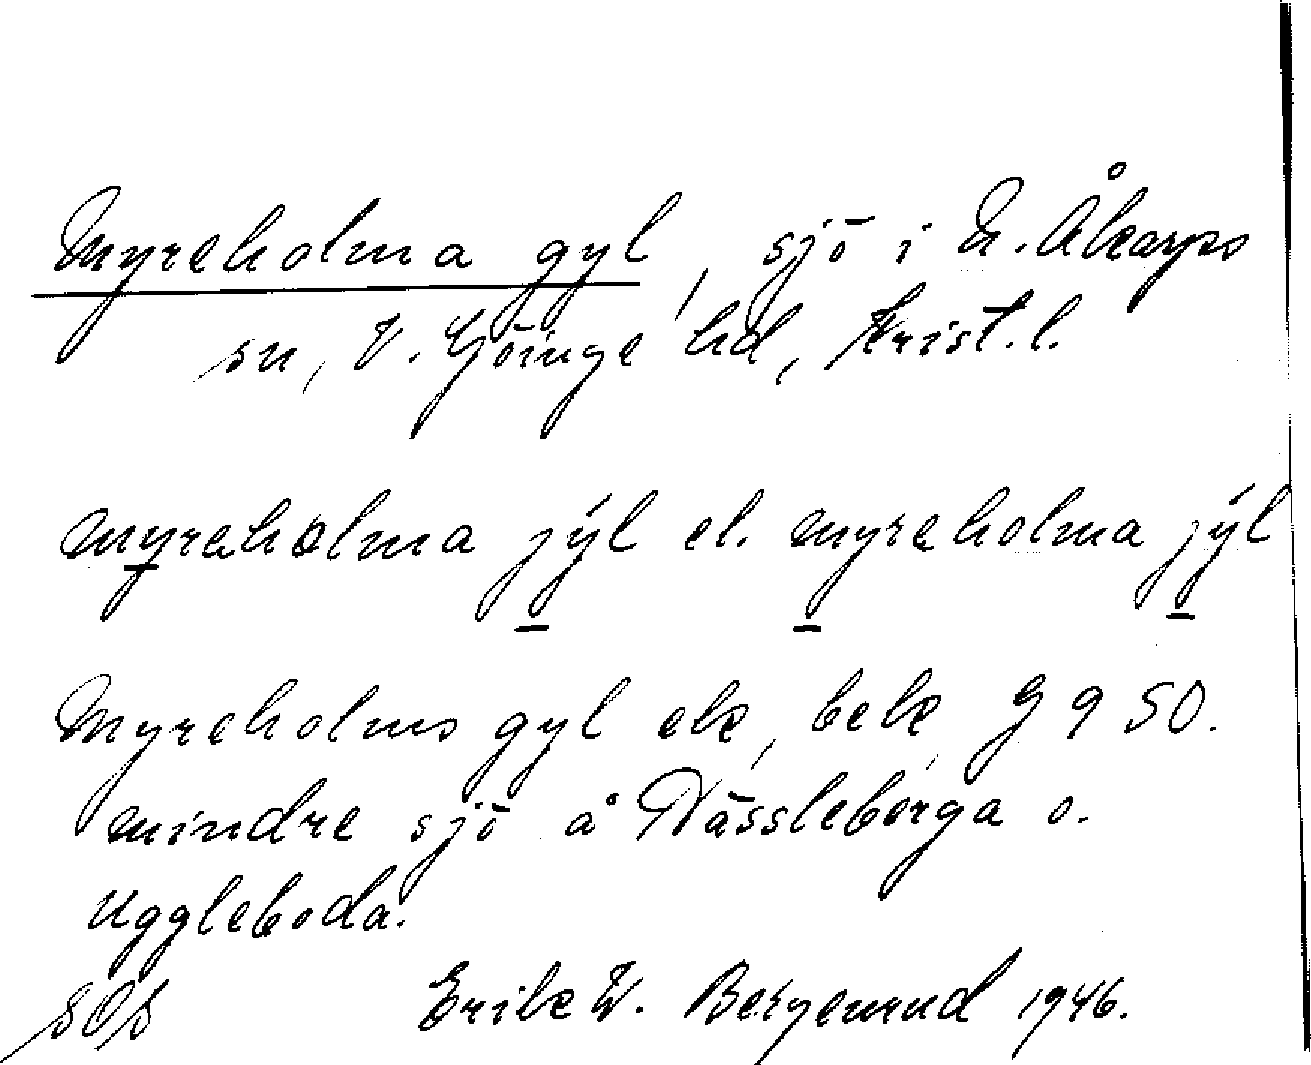 Myreholma gyl, sjö i N. Åkarps
sn, V. Göinge hd, Krist. l.
myreholma jýl el. myreholma jýl
Myreholms gyl ek, bek, G 9 50.
mindre sjö å Nässleborga o.
Uggleboda.
SOS Erik W. Bergenrud 1946.